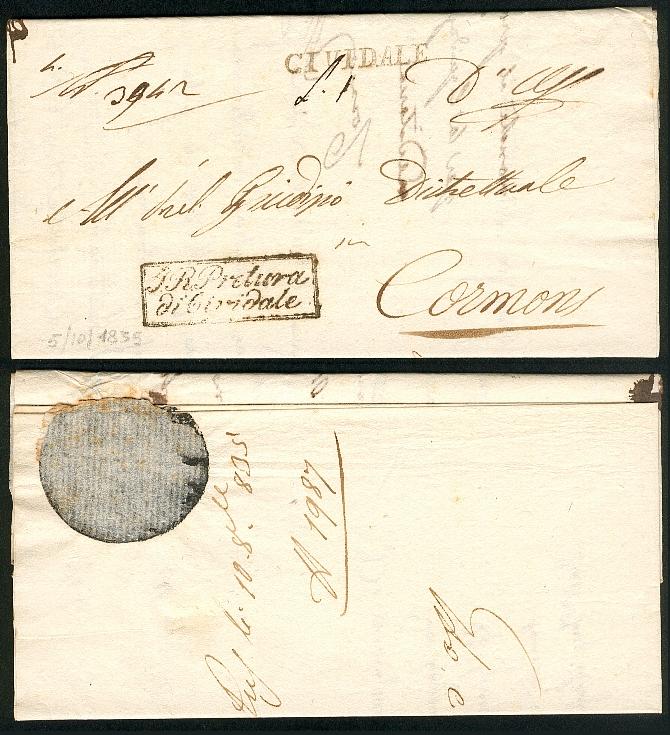 CIVIDALE
N. 3942
L. 1
D'Uff
e All' Incl. Giudizio Distrettuale
in
I R Pretura
di Cividale
Cormons
5/10/1835
li 10. 8bre 835
N 1987